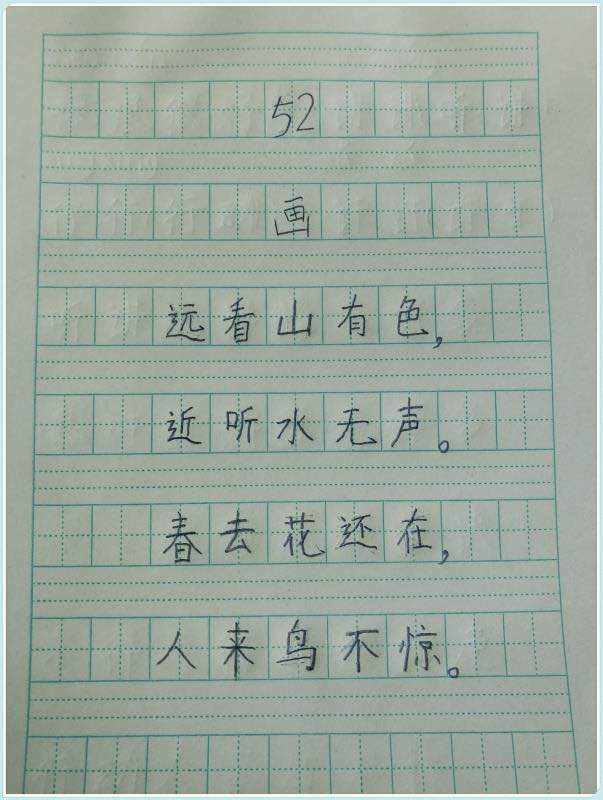 52
画
远看山有色,
近听水无声。
春去花还在,
人来鸟不惊。